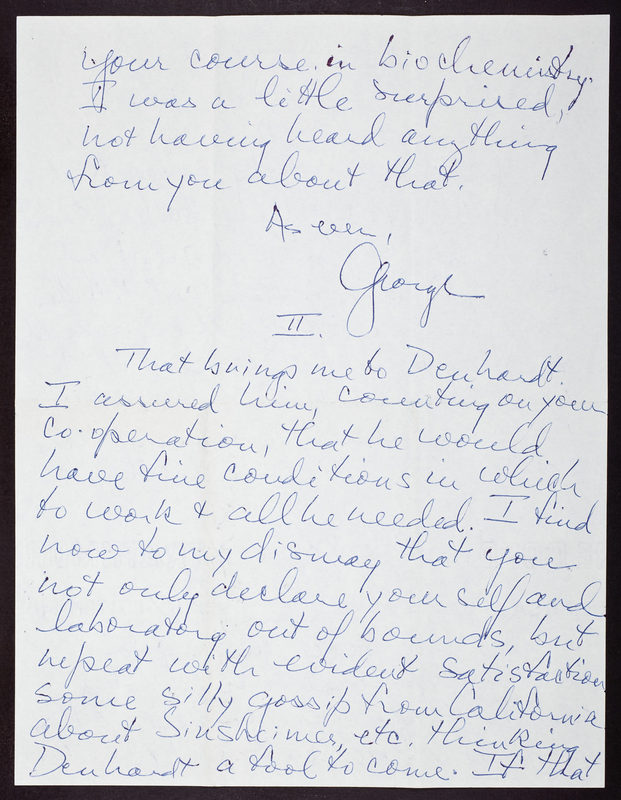 your course in biochemistry.
I was a little surprised,
not having heard anything
from you about that.
As ever,
George
II.
That brings me to Denhardt.
I assured him, counting on your
co-operation, that he would
have fine conditions in which
to work & all he needed. I find
now to my dismay that you
not only declare yourself and
laboratory out of bounds, but
repeat with evident satisfaction
some silly gossip from California
about Sinsheimer, etc. thinking
Denhardt a fool to come. If that